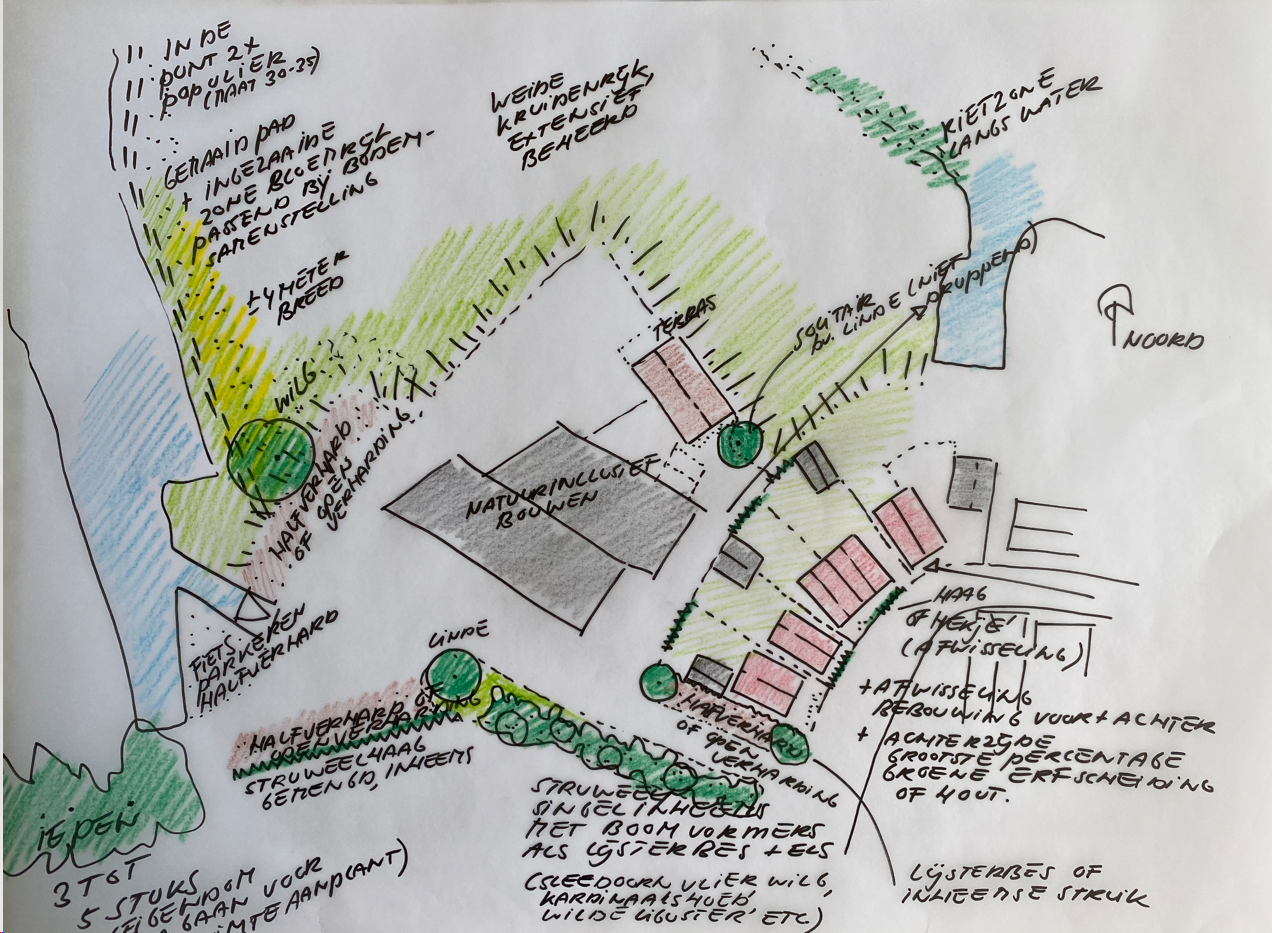 IN DE
PUNT 2X
POPULIER
(MAAT 30-35)
GEMAAID PAD
+ INGEZAAIDE
ZONE BLOEMRIJK
PASSEND BIJ BODEM-
SAMENSTELLING
± 4 METER
BREED
WEIDE
KRUIDENRIJK,
EXTENSIEF
BEHEERD
RIETZONE
LANGS WATER
NOORD
TERRAS
SOLITAIR
BV. LINDE (NIET
DRUPPEND)
WILG
HALFVERHARD
OF OPEN
VERHARDING
NATUURINCLUSIEF
BOUWEN
FIETS
PARKEREN
HALFVERHARD
LINDE
HALFVERHARD OF
OPEN VERHARDING
STRUWEELHAAG
GEMENGD, INHEEMS
HALFVERHARD
OF OPEN
VERHARDING
HAAG
OF HEKJE
(AFWISSELING)
+ AFWISSELING
BEBOUWING VOOR + ACHTER
+ ACHTERZIJDE
GROOTSTE PERCENTAGE
GROENE ERFSCHEIDING
OF HOUT.
STRUWEEL
SINGEL INHEEMS
MET BOOMVORMERS
ALS LIJSTERBES + ELS
(SLEEDOORN VLIER WILG,
KARDINAALSHOED
WILDE LIGUSTER ETC)
LIJSTERBES OF
INHEEMSE STRUIK
IEPEN
3 TOT
5 STUKS
EIGENDOM
GAAN VOOR
AANPLANT)